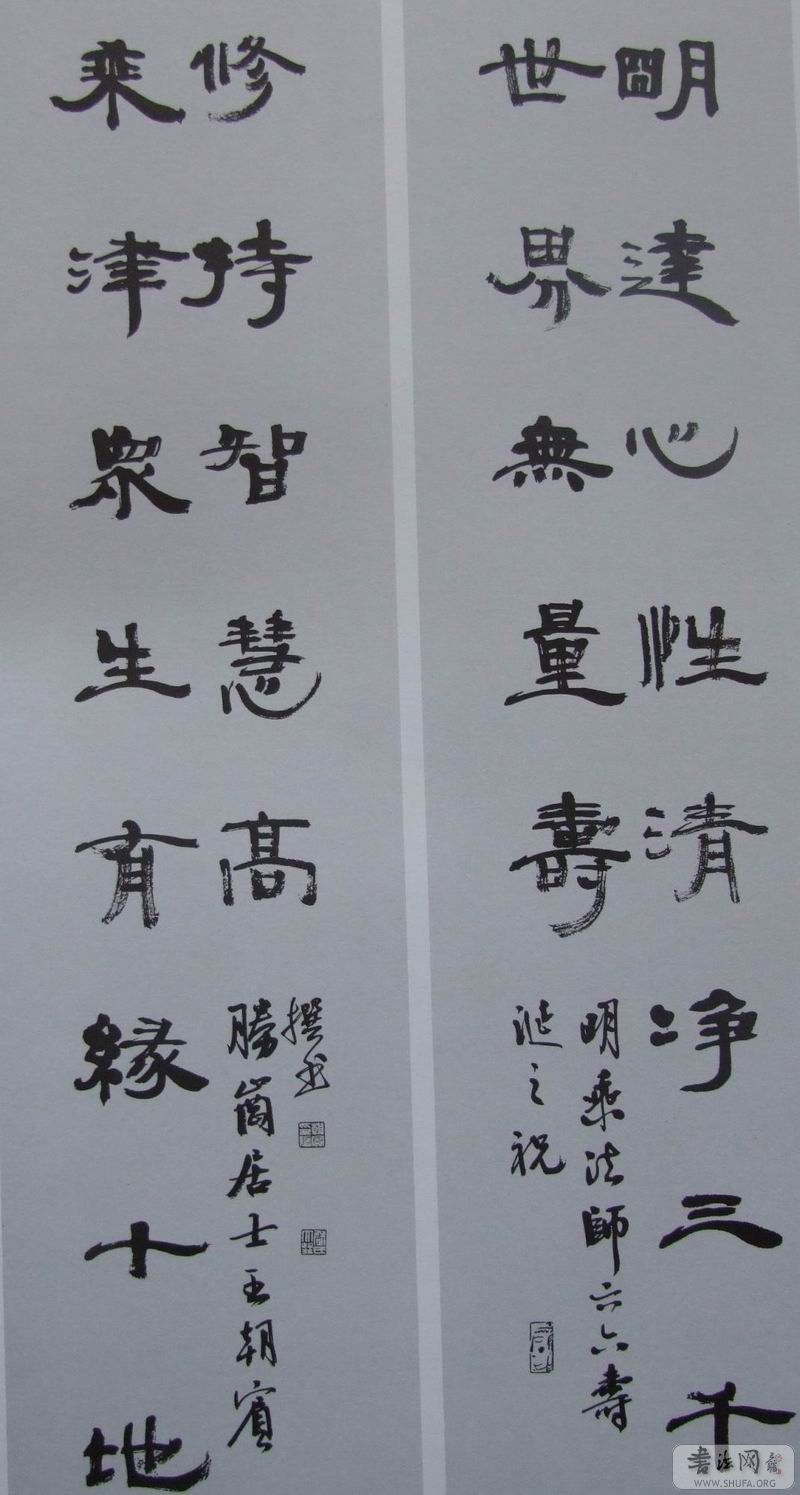 明達心性清净三千
世界無量壽
明乘法師六六壽
誕之祝
乘津眾生有緣十地
修持智慧高
勝崗居士王朝賓
撰書
書法网
WWW.SHUFA.ORG